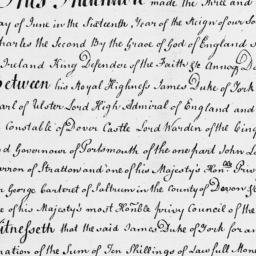 This Indenture made the Three and
day of June in the Sixteenth Year of the Reign of our So
Charles the Second By the Grace of God of England S
Ireland King Defender of the Faith &c Annoq Do
Between his Royal Highness James Duke of York
Earl of Ulster Lord High Admiral of England and
Constable of Dover Castle Lord Warden of the Cinq
d Governour of Portsmouth of the one part John L
arron of Stratton and one of his Majesty's Honble Privy
r George Carteret of Saltrum in the County of Devon
e of his Majesty's most Honble privy Council of the
Witnesseth that the said James Duke of York for an
ration of the Sum of Ten Shillings of Lawfull Mone